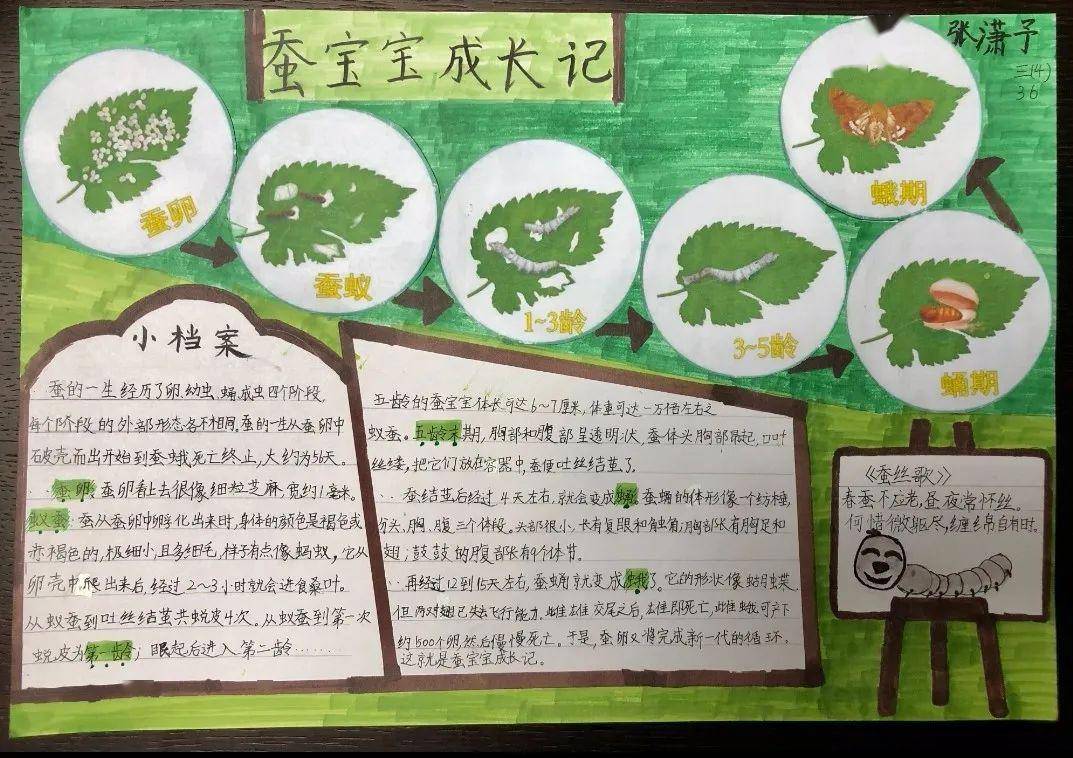 蚕宝宝成长记
张潇予
三(4)
36
蚕卵
蚕蚁
1~3龄
3~5龄
蛹期
蛾期
小档案
蚕的一生经历了卵、幼虫、蛹、成虫四个阶段,
每个阶段的外部形态各不相同,蚕的一生从蚕卵中
破壳而出开始到蚕蛾死亡终止,大约为56天。
蚕卵:蚕卵看上去很像细粒芝麻,宽约1毫米。
蚁蚕:蚕从蚕卵中孵化出来时,身体的颜色是褐色或
赤褐色的,极细小,且多细毛,样子有点像蚂蚁,它从
卵壳中爬出来后,经过2~3小时就会进食桑叶。
从蚁蚕到吐丝结茧共蜕皮4次。从蚁蚕到第一次
蜕皮为第一龄;眠起后进入第二龄……
五龄的蚕宝宝体长可达6~7厘米,体重可达一万倍左右之
蚁蚕。五龄末期,胸部和腹部呈透明状,蚕体头胸部昂起,口吐
丝缕,把它们放在容器中,蚕便吐丝结茧了。
蚕结茧后经过4天左右,就会变成蛹。蚕蛹的体形像一个纺棰,
分头、胸、腹三个体段。头部很小,长有复眼和触角;胸部长有胸足和
翅;鼓鼓的腹部长有9个体节。
再经过12到15天左右,蚕蛹就变成蚕蛾了。它的形状像蝴蝶,
但两对翅已失去飞行能力。雌雄交尾之后,雄即死亡,雌蛾可产下
约500个卵,然后慢慢死亡。于是,蚕卵又将完成新一代的循环,
这就是蚕宝宝成长记。
《蚕丝歌》
春蚕不应老,昼夜常怀丝。
何惜微躯尽,缠绵自有时。